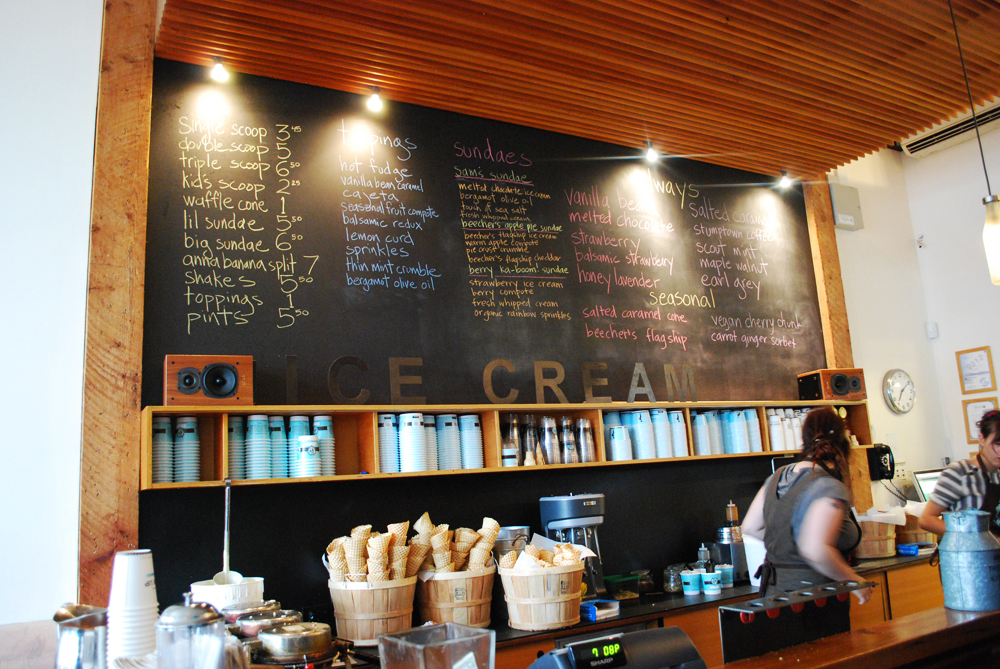 single scoop 3.45
double scoop 5
triple scoop 6.50
kid's scoop 2.25
waffle cone 1
lil sundae 5.50
big sundae 6.50
anna banana split 7
shakes 5.50
toppings 1
pints 5.50
toppings
hot fudge
vanilla bean caramel
cajeta
seasonal fruit compote
balsamic redux
lemon curd
sprinkles
thin mint crumble
bergamot olive oil
sundaes
sam's sundae
melted chocolate ice cream
bergamot olive oil
sea salt
fresh whipped cream
beecher's apple pie sundae
beecher's flagship ice cream
warm apple compote
pie crust crumble
beecher's flagship cheddar
berry ka-boom! sundae
strawberry ice cream
berry compote
fresh whipped cream
organic rainbow sprinkles
always
vanilla bean
melted chocolate
strawberry
balsamic strawberry
honey lavender
salted caramel
stumptown coffee
scout mint
maple walnut
earl grey
seasonal
salted caramel cone
beecher's flagship
vegan cherry chunk
carrot ginger sorbet
ICE CREAM
7 08P
SHARP